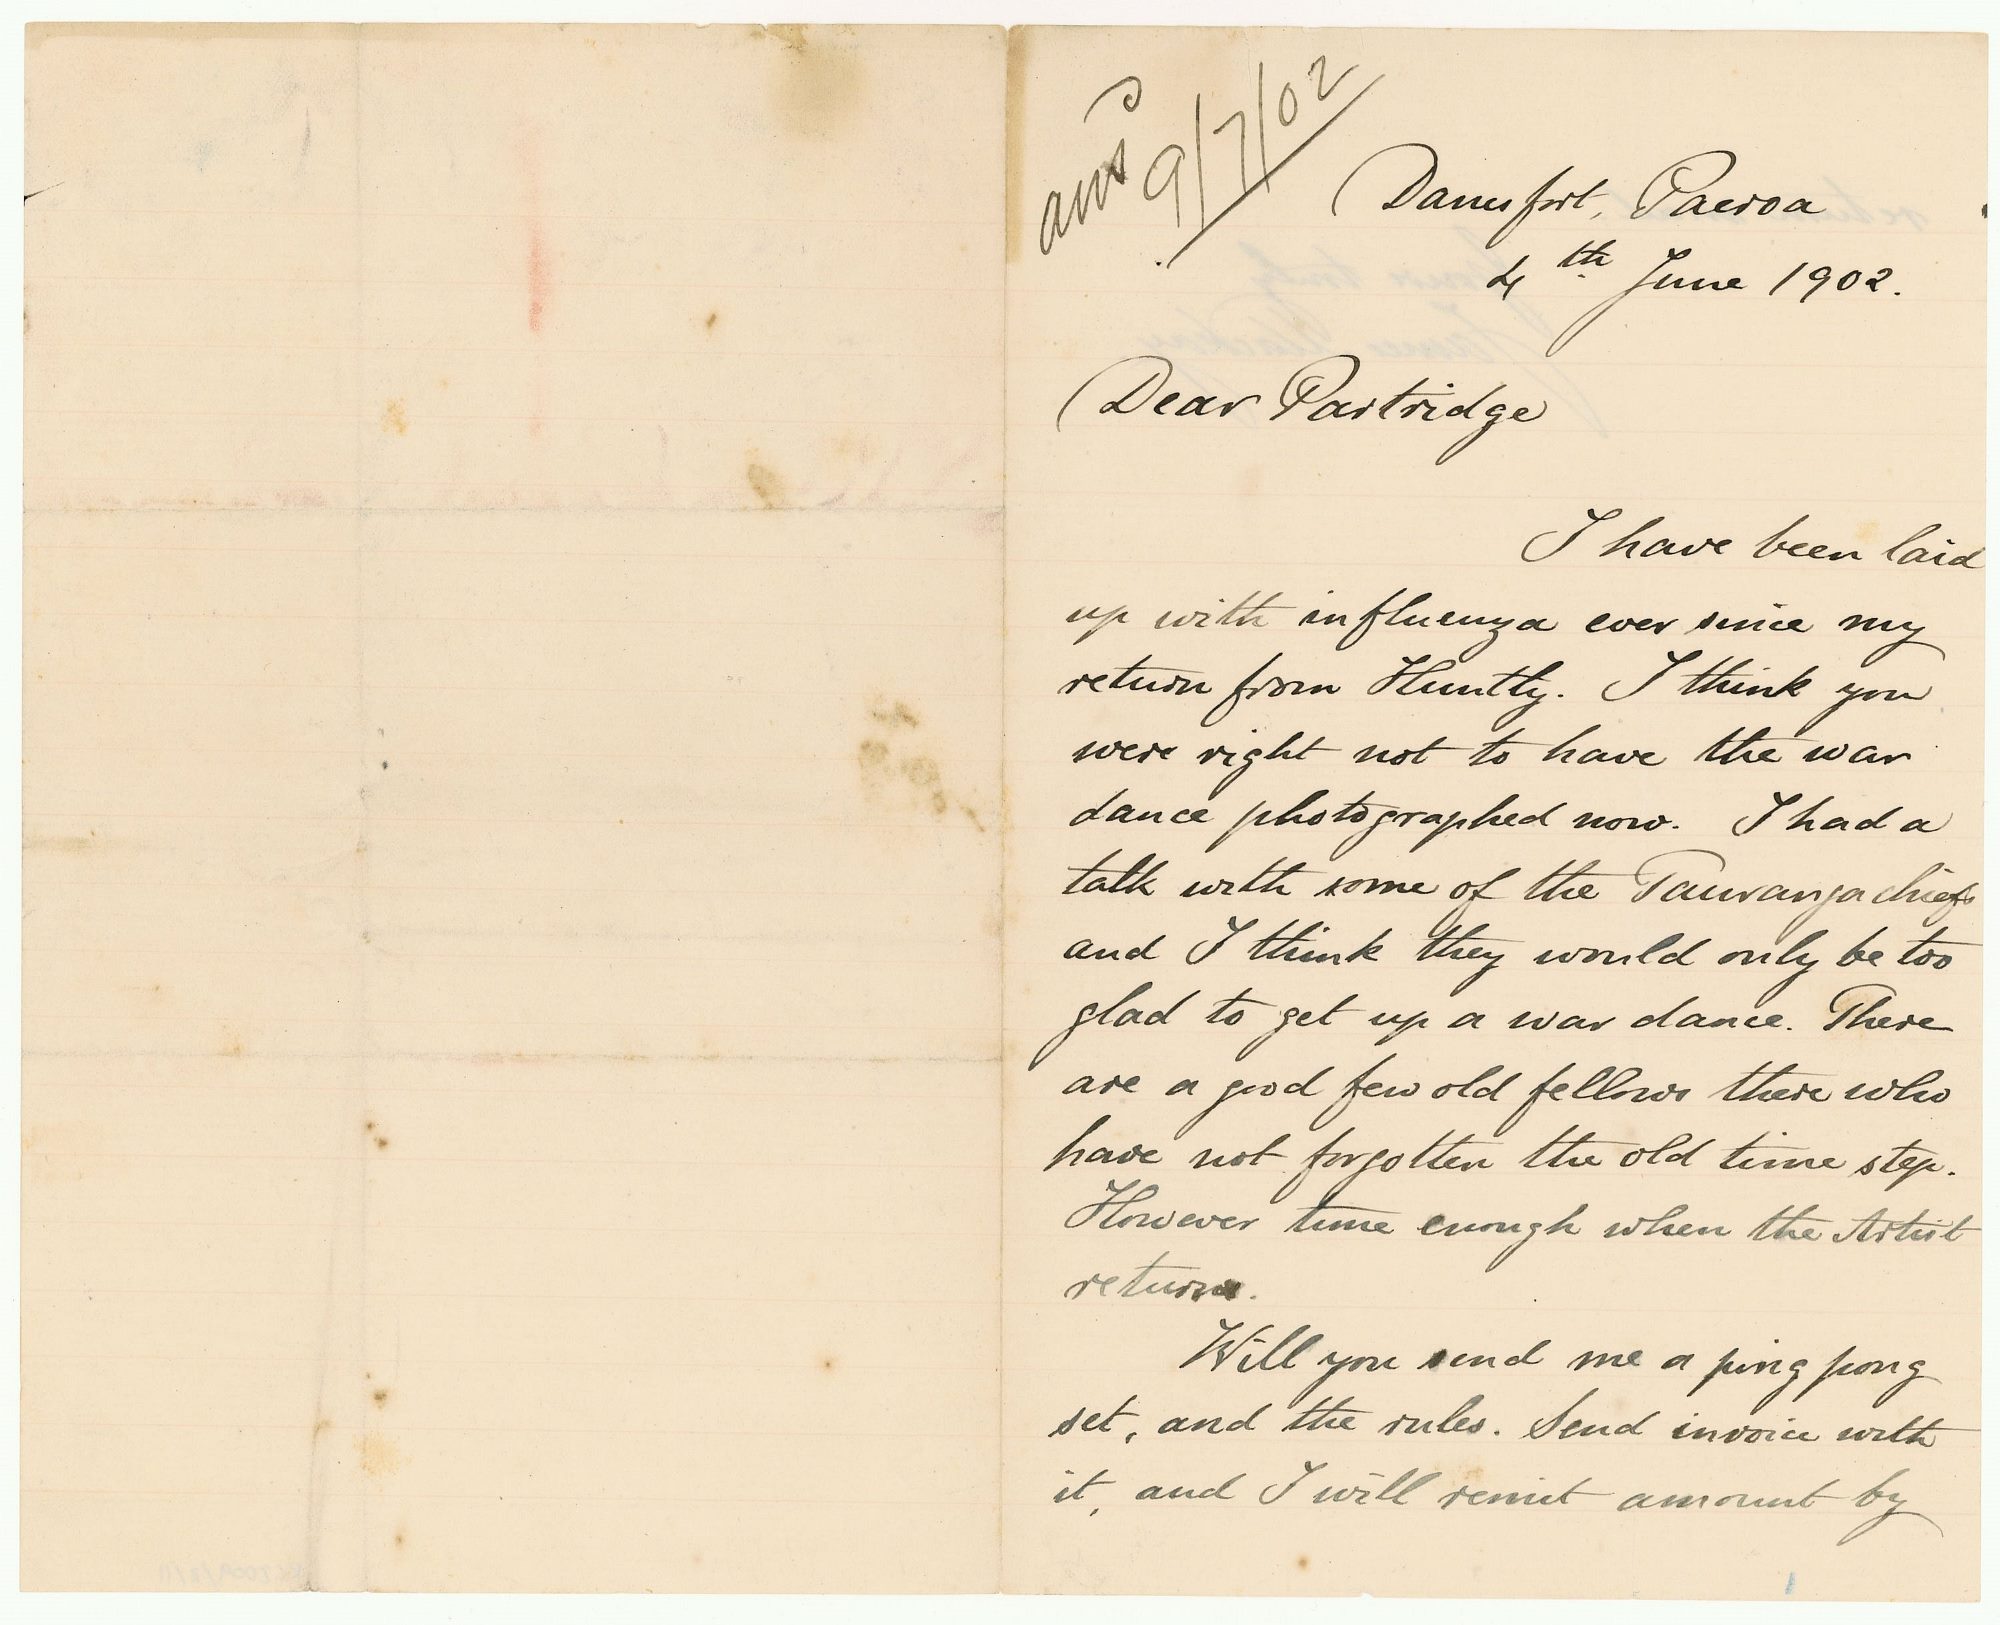 ansd 9/7/02
Danesfort, Paeroa
4th June 1902.
Dear Partridge
I have been laid
up with influenza ever since my
return from Huntly. I think you
were right not to have the war
dance photographed now. I had a
talk with some of the Tauranga chiefs
and I think they would only be too
glad to get up a war dance. There
are a good few old fellows there who
have not forgotten the old time step.
However time enough when the Artist
return.
Will you send me a ping pong
set, and the rules. Send invoice with
it, and I will remit amount by